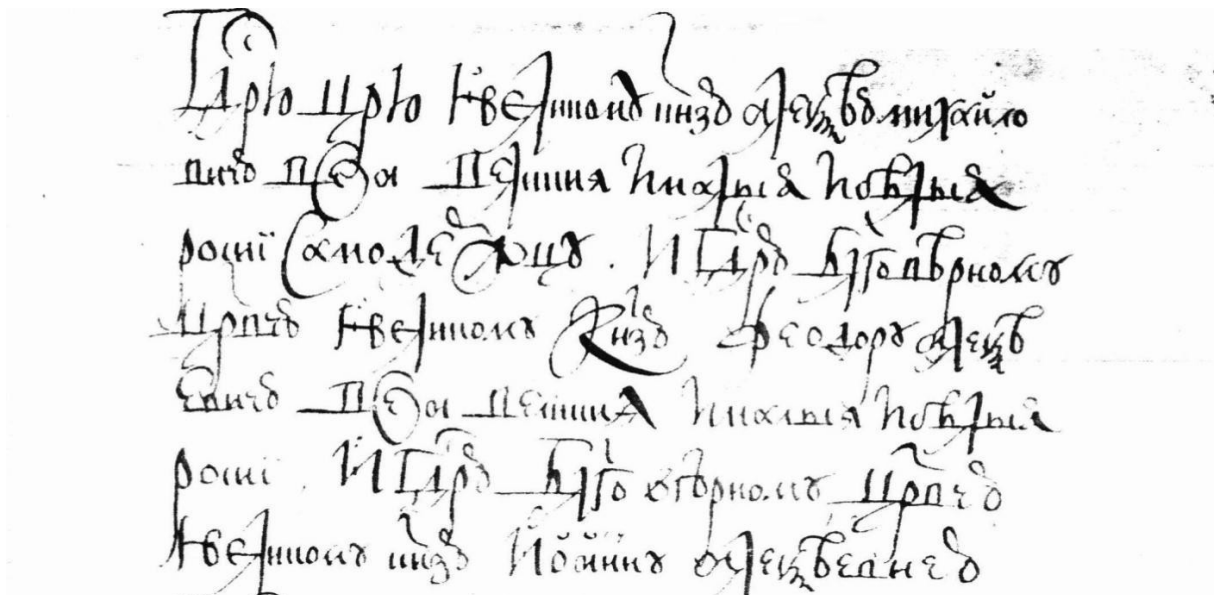 Гдрю црю ї великому кнзю алеѯѣю михайло
вичю всеа великия и малыя и бѣлыя
росиї самодержцу. И гдрю блгове́рному
црвчю ї великому кнзю феодору алеѯѣ
евичю всеа великия и малыя и бѣлыя
росиї. И гдрю блговѣрному црвчю
ї великому кнзю иоанну алеѯѣевичю